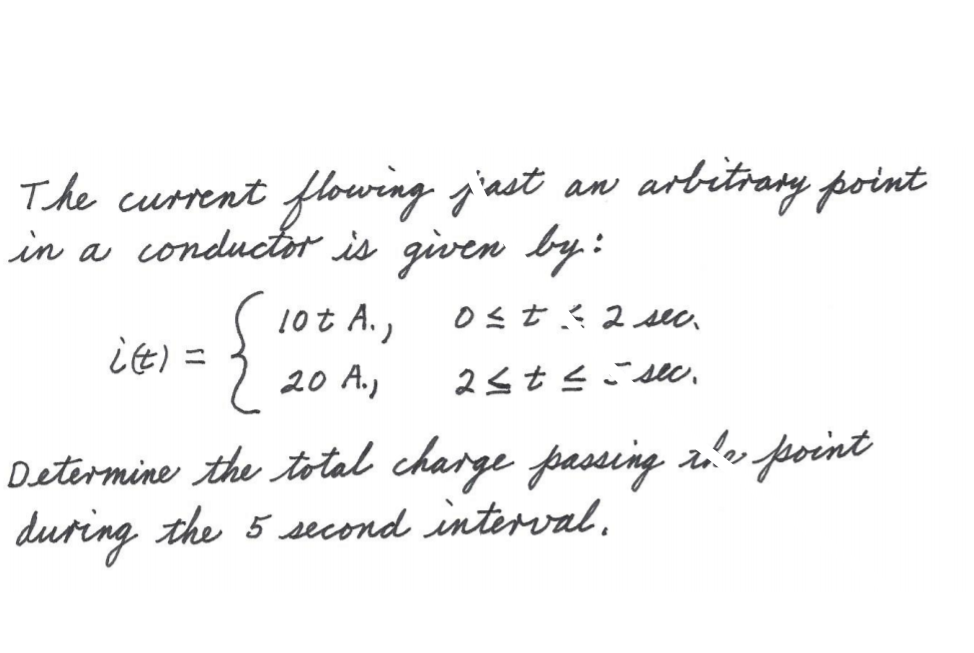 The current flowing past an arbitrary point
in a conductor is given by:
i(t) = { 10t A., 0 ≤ t ≤ 2 sec.
20 A., 2 ≤ t ≤ sec.
Determine the total charge passing the point
during the 5 second interval.